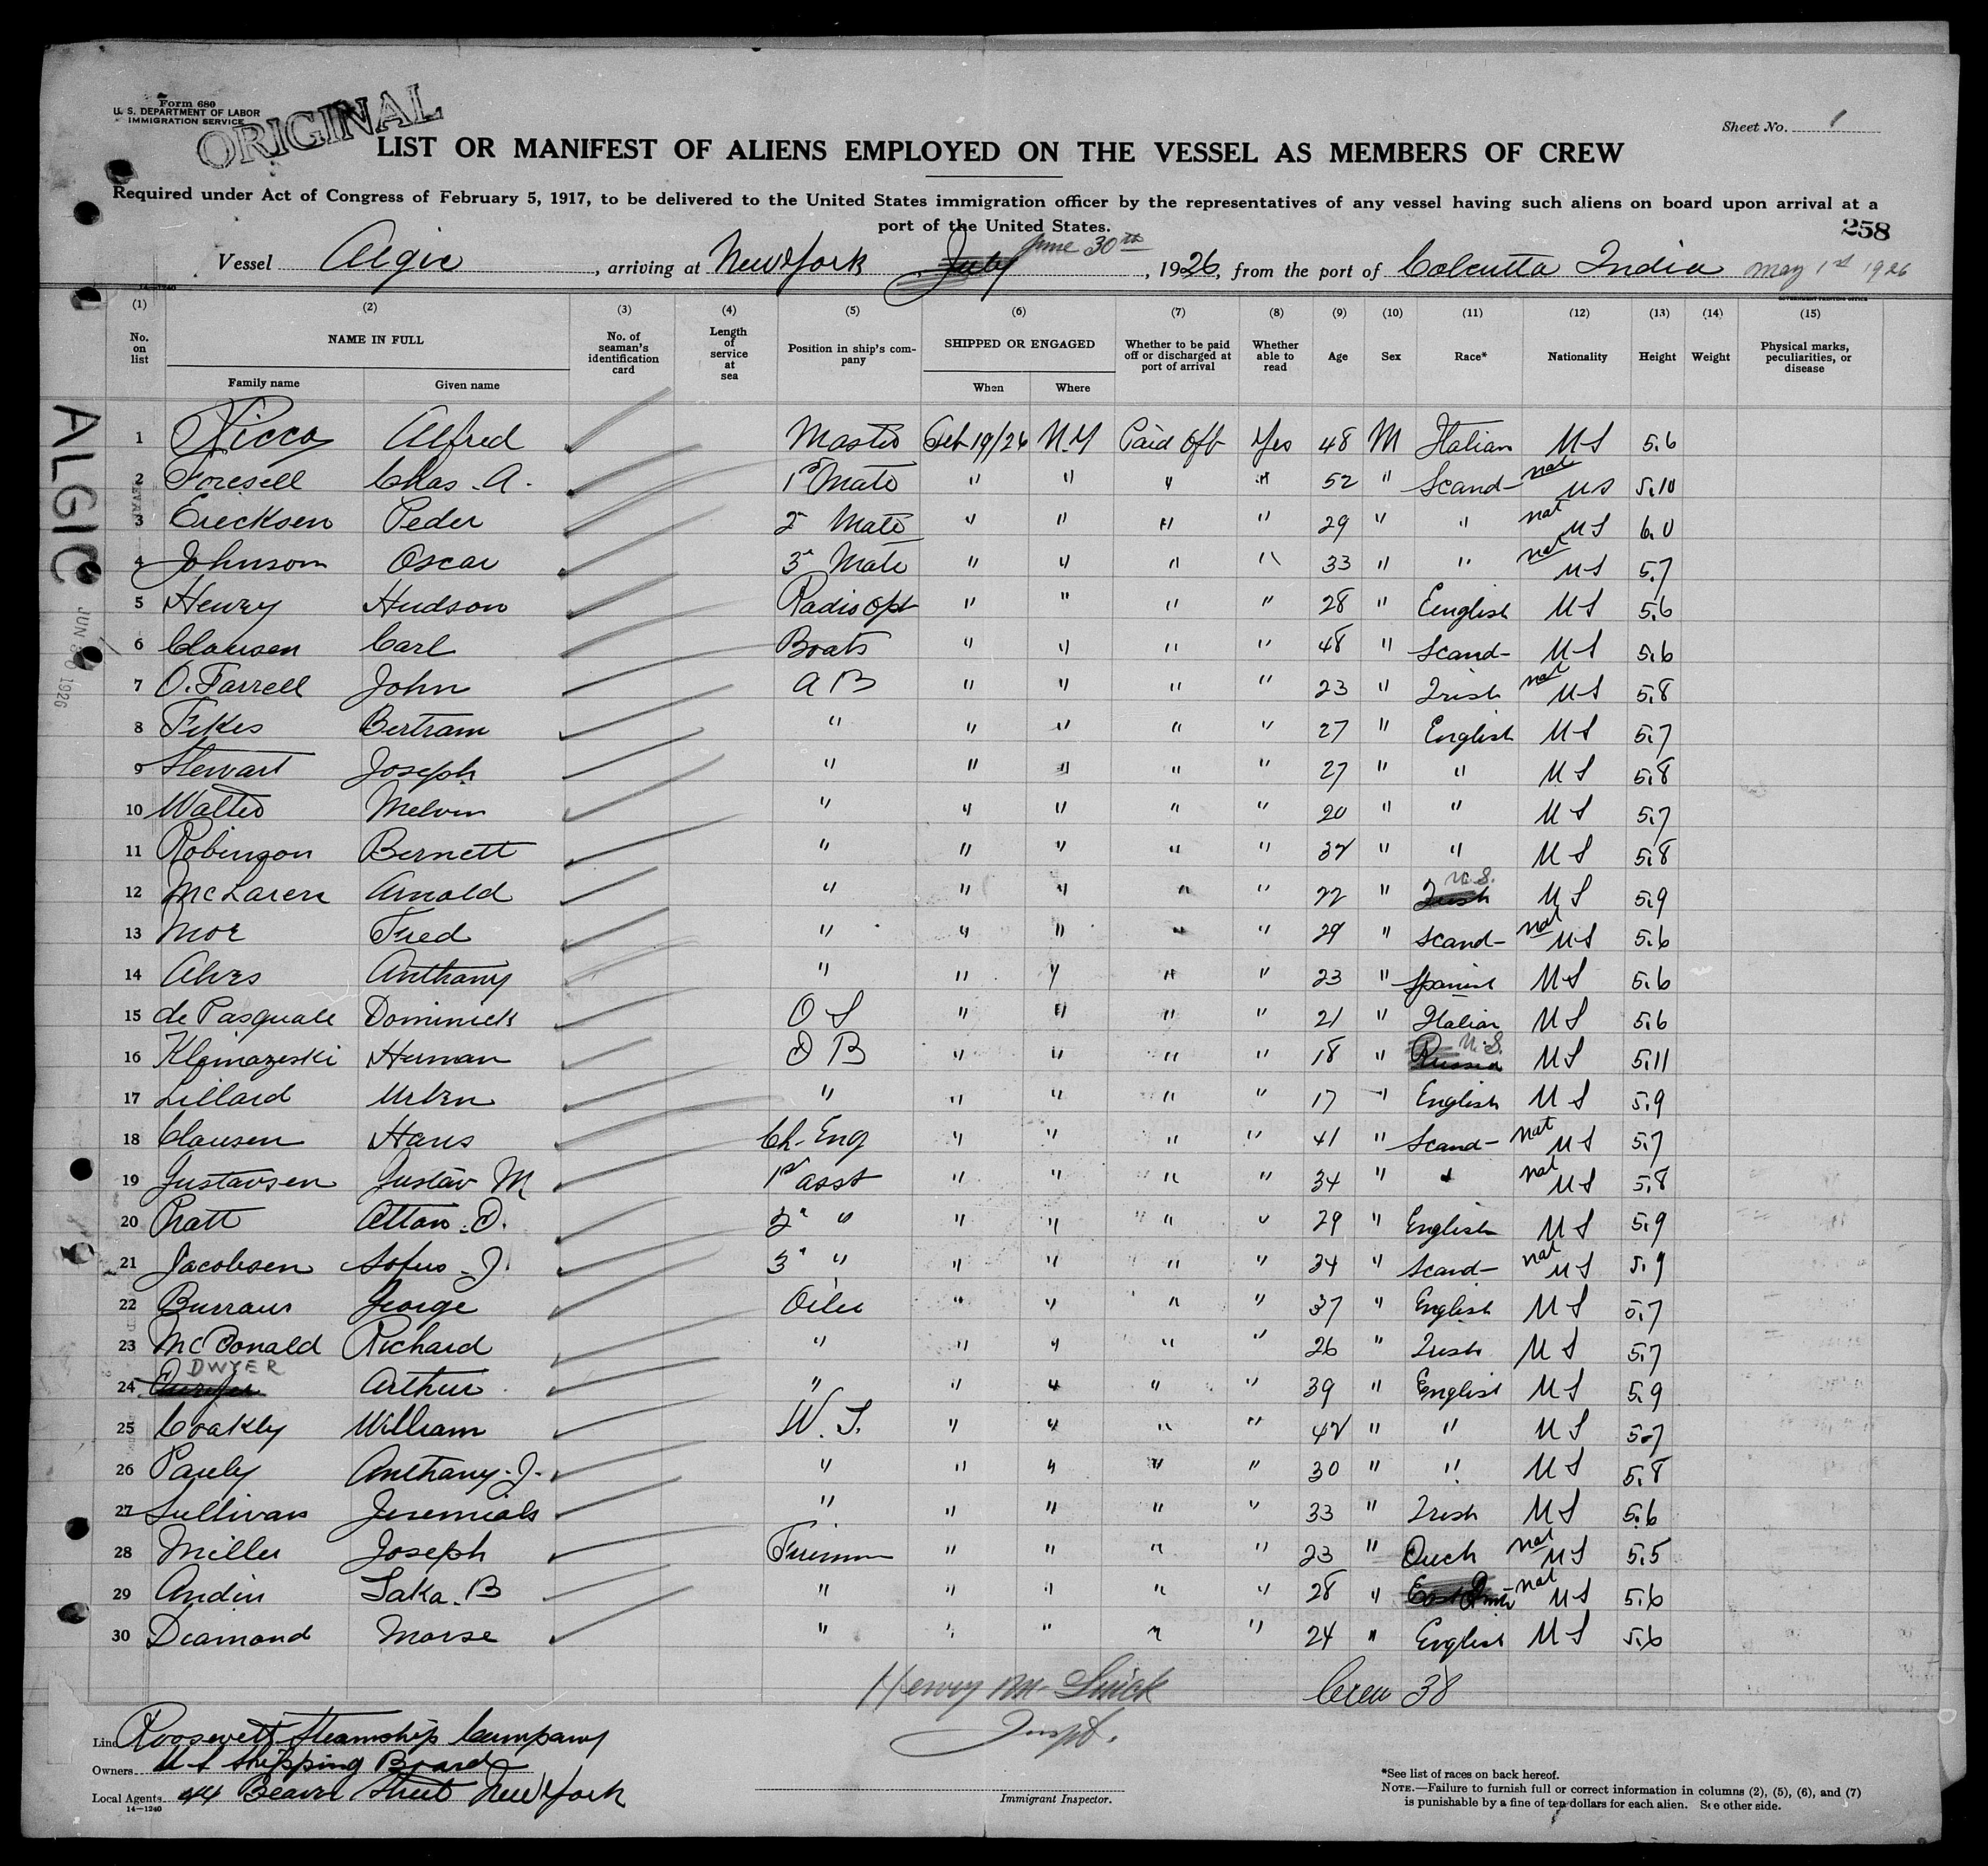 Form 680
U. S. DEPARTMENT OF LABOR
IMMIGRATION SERVICE
ORIGINAL
Sheet No. 1
LIST OR MANIFEST OF ALIENS EMPLOYED ON THE VESSEL AS MEMBERS OF CREW
Required under Act of Congress of February 5, 1917, to be delivered to the United States immigration officer by the representatives of any vessel having such aliens on board upon arrival at a
port of the United States.
258
Vessel Algic, arriving at New York July June 30th, 1926, from the port of Calcutta India May 1st 1926
14—1240
GOVERNMENT PRINTING OFFICE
(1) (2) (3) (4) (5) (6) (7) (8) (9) (10) (11) (12) (13) (14) (15)
No. on list NAME IN FULL No. of seaman's identification card Length of service at sea Position in ship's company SHIPPED OR ENGAGED Whether to be paid off or discharged at port of arrival Whether able to read Age Sex Race* Nationality Height Weight Physical marks, peculiarities, or disease
Family name Given name When Where
ALGIC
JUN 30 1926
1 Ricco Alfred Master Feb 19/26 N.Y Paid Off Yes 48 M Italian U S 5.6
2 Foresell Chas. A. 1st Mate " " " " 52 " Scand- nat U S 5.10
3 Ericksen Peder 2 Mate " " " " 29 " " nat U S 6.0
4 Johnson Oscar 3 Mate " " " " 33 " " nat U S 5.7
5 Henry Hudson Radio Opt " " " " 28 " English U S 5.6
6 Clausen Carl Boats " " " " 48 " Scand- U S 5.6
7 O. Farrell John A B " " " " 23 " Irish nat U S 5.8
8 Fikes Bertram " " " " " 27 " English U S 5.7
9 Stewart Joseph " " " " " 27 " " U S 5.8
10 Walters Melvin " " " " " 20 " " U S 5.7
11 Robinson Bernett " " " " " 32 " " U S 5.8
12 McLaren Arnold " " " " " 22 " Irish U.S. U S 5.9
13 Moe Fred " " " " " 29 " Scand- nat U S 5.6
14 Alves Anthony " " " " " 23 " Spanish U S 5.6
15 de Pasquale Dominick O S " " " " 21 " Italian U S 5.6
16 Klimazeski Herman D B " " " " 18 " Russia U.S. U S 5.11
17 Lillard Urben " " " " " 17 " English U S 5.9
18 Clausen Hans Ch. Eng " " " " 41 " Scand- nat U S 5.7
19 Gustavsen Gustav M 1st asst " " " " 34 " " nat U S 5.8
20 Pratt Alton. D. 2" " " " " " 29 " English U S 5.9
21 Jacobsen Sofus. J. 3" " " " " " 34 " Scand- nat U S 5.9
22 Burraus George Oiler " " " " 37 " English U S 5.7
23 McDonald Richard " " " " " 26 " Irish U S 5.7
24 DWYER Arthur " " " " " 39 " English U S 5.9
25 Coakley William W. T. " " " " 42 " " U S 5.7
26 Pauly Anthony. J. " " " " " 30 " " U S 5.8
27 Sullivan Jeremiah " " " " " 33 " Irish U S 5.6
28 Miller Joseph Fireman " " " " 23 " Duch nat U S 5.5
29 Andin Saka. B " " " " " 28 " East nat U S 5.6
30 Diamond Morse " " " " " 24 " English U S 5.6
Crew 38
Inspt.
Line Roosevelt Steamship Company
Owners U S Shipping Board
Local Agents 44 Beaver Street New York
14—1240
Immigrant Inspector.
*See list of races on back hereof.
NOTE.—Failure to furnish full or correct information in columns (2), (5), (6), and (7)
is punishable by a fine of ten dollars for each alien. See other side.